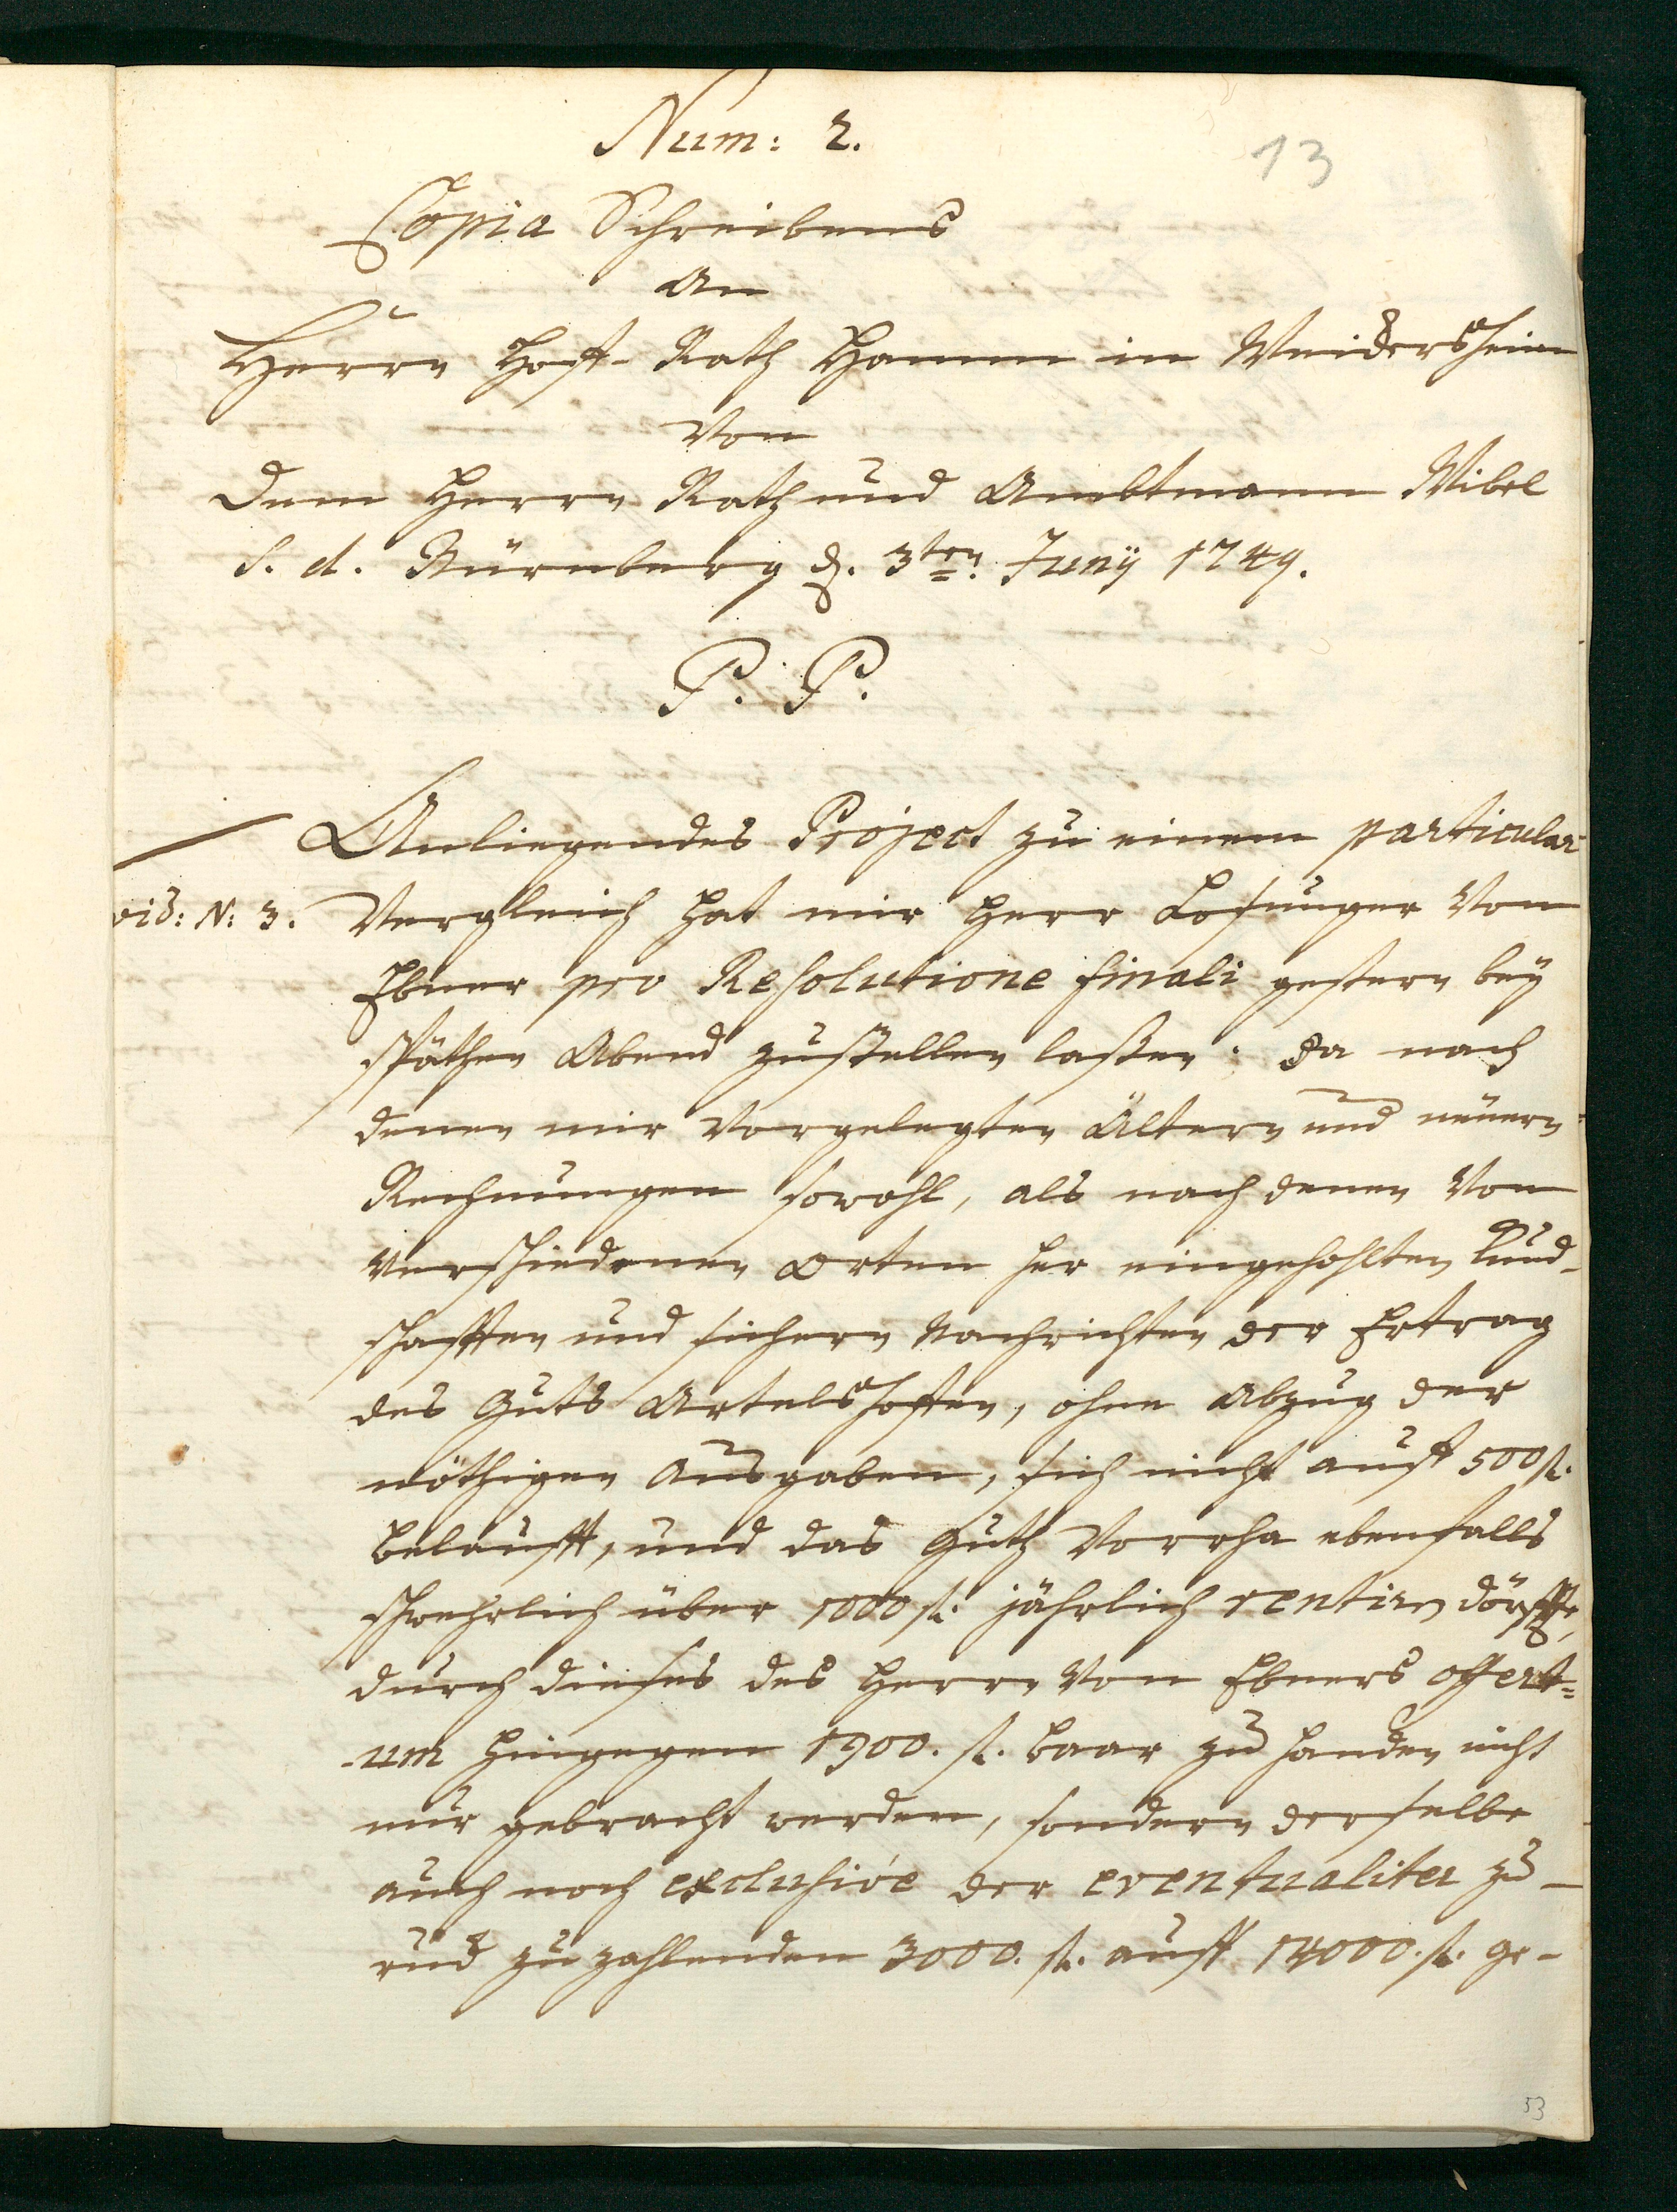 Num: 2.
13
Copia Schreibens
An
Herrn Hoff-Rath Hamm in Weickersheim
Von
Dem Herrn Rath und Ambtmann Wibel
S. d. Nürnberg d. 3ten Junij 1749.
P. P.
Anliegendes Project zu einem particular
vid: N: 3. Vergleich hat mir Herr Losunger Von
Ebner pro Resolutione finali gestern bey
späthen Abend zustellen laßen. Da nach
denen mir Vorgelegten Ältern und neüern
Rechnungen sowohl, als nach denen Von
Verschiedenen Orten her eingehohlten Kund-
schafften und sichern Nachrichten der Ertrag
des Guts Artelshoffen, ohne Abzug der
nöthigen Ausgaben, sich nicht auff 500 fl.
belaufft, und das Guth Vorrha ebenfalls
schwehrlich über 1000 fl. jährlich rentiren dörffte,
durch dieses des Herrn Von Ebners offert=
-um hingegen 1900. fl. baar zu Handen nicht
nur gebracht werden, sondern derselbe
auch noch exclusive der eventualiter zu-
ruck zu zahlenden 3000. fl. auff 14000. fl. ge-
53